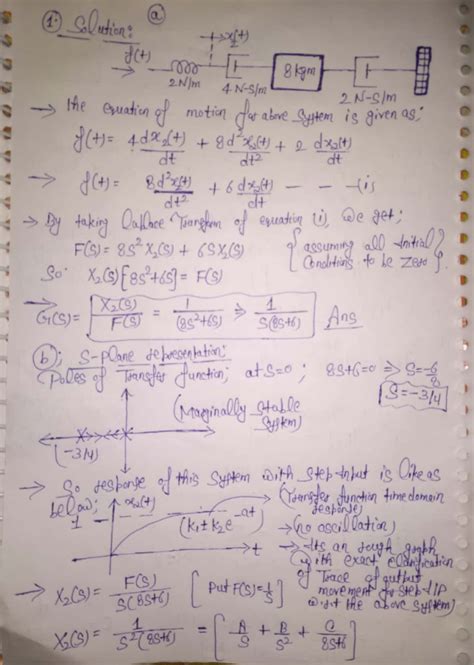 1. Solution: (a)
f(t) x₂(t)
2 N/m 4 N-S/m 8 kgm 2 N-S/m
→ The equation of motion for above System is given as;
f(t) = 4 dx₂(t)/dt + 8 d²x₂(t)/dt² + 2 dx₂(t)/dt
→ f(t) = 8 d²x₂(t)/dt² + 6 dx₂(t)/dt - - - (i)
→ By taking Laplace Transform of equation (i), we get;
F(S) = 8S² X₂(S) + 6S X₂(S) {assuming all Initial Conditions to be Zero}.
So X₂(S)[8S²+6S] = F(S)
→ G(S) = X₂(S)/F(S) = 1/(8S²+6S) ⇒ 1/S(8S+6) Ans
(b); S-Plane representation:
Poles of Transfer function; at S=0; 8S+6=0 ⇒ S=-6/8
S=-3/4
(Marginally Stable System)
(-3/4)
→ So response of this System with Step-Input is like as
below; x₂(t) (Transfer function time domain response)
1 (k₁±k₂e^-at) → (no oscillation)
t → Its an rough graph
with exact
Trace of output
movement for Step-I/P
w.r.t the above System)
→ X₂(S) = F(S)/S(8S+6) [Put F(S)=1/S]
X₂(S) = 1/S²(8S+6) = [A/S + B/S² + C/8S+6]